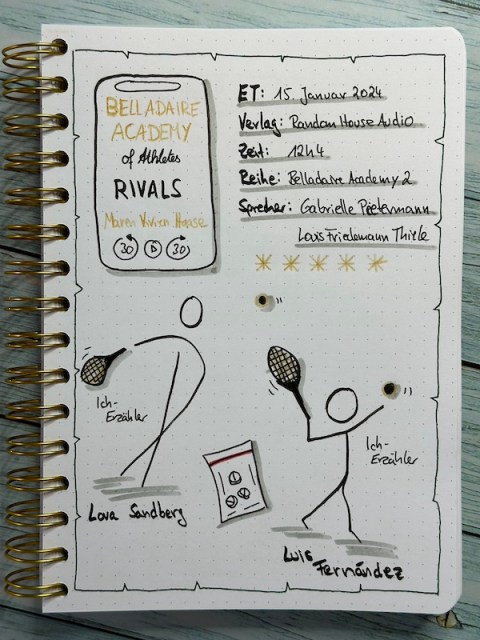 BELLADAIRE
ACADEMY
of Athletes
RIVALS
Maren Vivien Haase
30 30
ET: 15. Januar 2024
Verlag: Random House Audio
Zeit: 12h4
Reihe: Belladaire Academy 2
Sprecher: Gabrielle Pietermann
Louis Friedemann Thiele
Ich-
Erzähler
Lova Sandberg
Ich-
Erzähler
Luis
Fernández